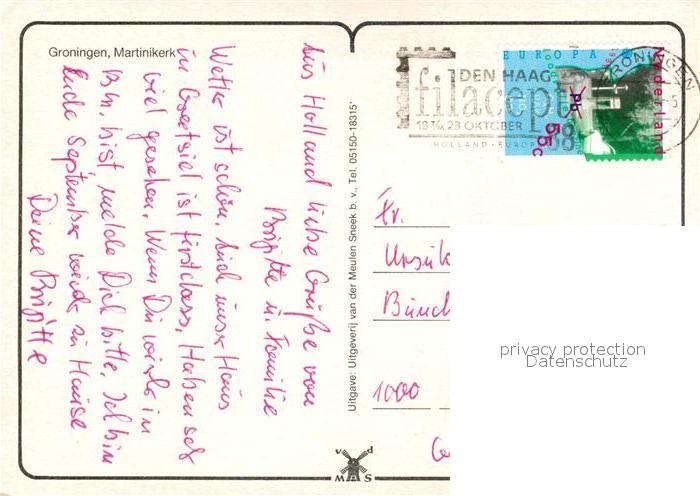 Groningen, Martinikerk
Aus Holland liebe Grüße von
Brigitte u. Familie
Wetter ist schön. Auch unser Haus
in Greetsiel ist firstclass. Haben sch
viel gesehen. Wenn Du wieder in
Bln. bist melde Dich bitte. Ich bin
Ende September wieder zu Hause.
Deine Brigitte
Uitgave: Uitgeverij van der Meulen Sneek b. v., Tel. 05150-18315*
DEN HAAG
filacept
18 t/m 23 OKTOBER 88
HOLLAND - EUROP
GRONINGEN
EUROPA
Nederland
55c
Fr.
Ursul
Bünd
1000
v d
M S
privacy protection
Datenschutz